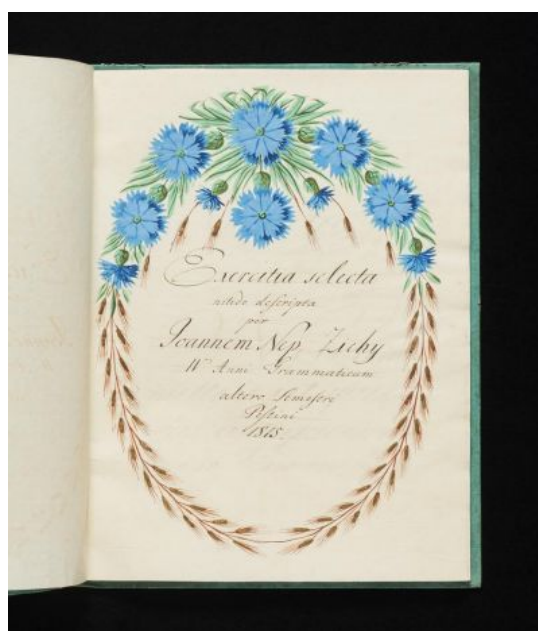 Exercitia selecta
nitide descripta
per
Joannem Nep. Zichy
IV Anni Grammaticum
altero Semestri
Pestini
1815.